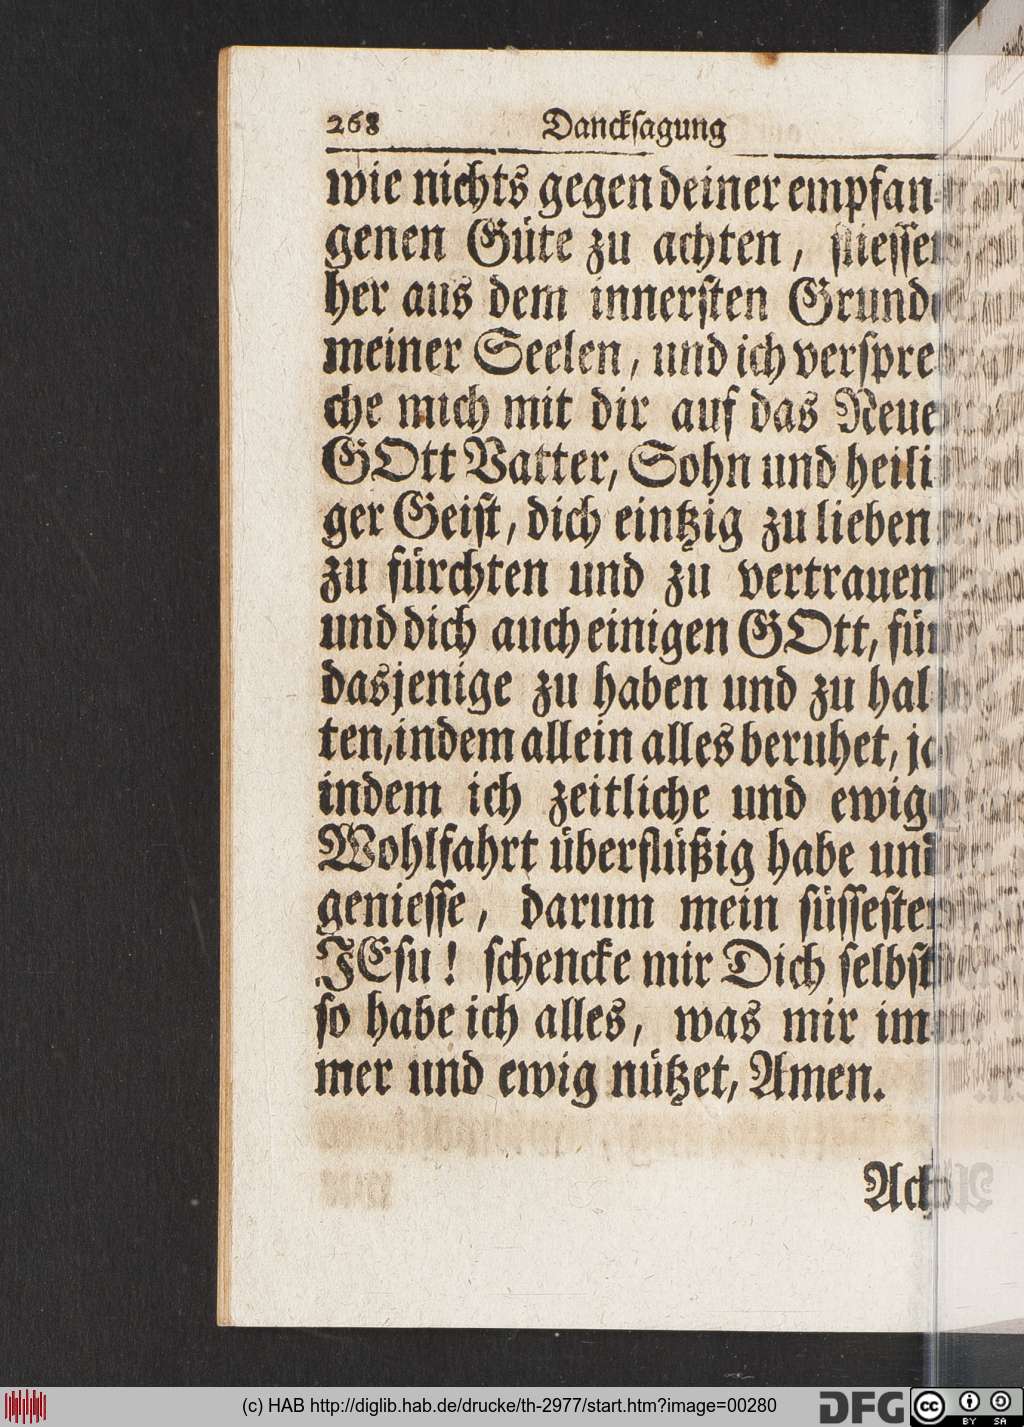 268 Danckſagung
wie nichts gegen deiner empfan-
genen Güte zu achten, flieſſen
her aus dem innerſten Grunde
meiner Seelen, und ich verſpre-
che mich mit dir auf das Neue
GOtt Vatter, Sohn und heili-
ger Geiſt, dich eintzig zu lieben
zu fürchten und zu vertrauen
und dich auch einigen GOtt, für
dasjenige zu haben und zu hal-
ten, indem allein alles beruhet, ja
indem ich zeitliche und ewige
Wohlfahrt überflüßig habe und
genieſſe, darum mein ſüſſeſter
JEſu! ſchencke mir Dich ſelbſt
ſo habe ich alles, was mir im-
mer und ewig nützet, Amen.
Ach
(c) HAB http://diglib.hab.de/drucke/th-2977/start.htm?image=00280
DFG
cc BY SA